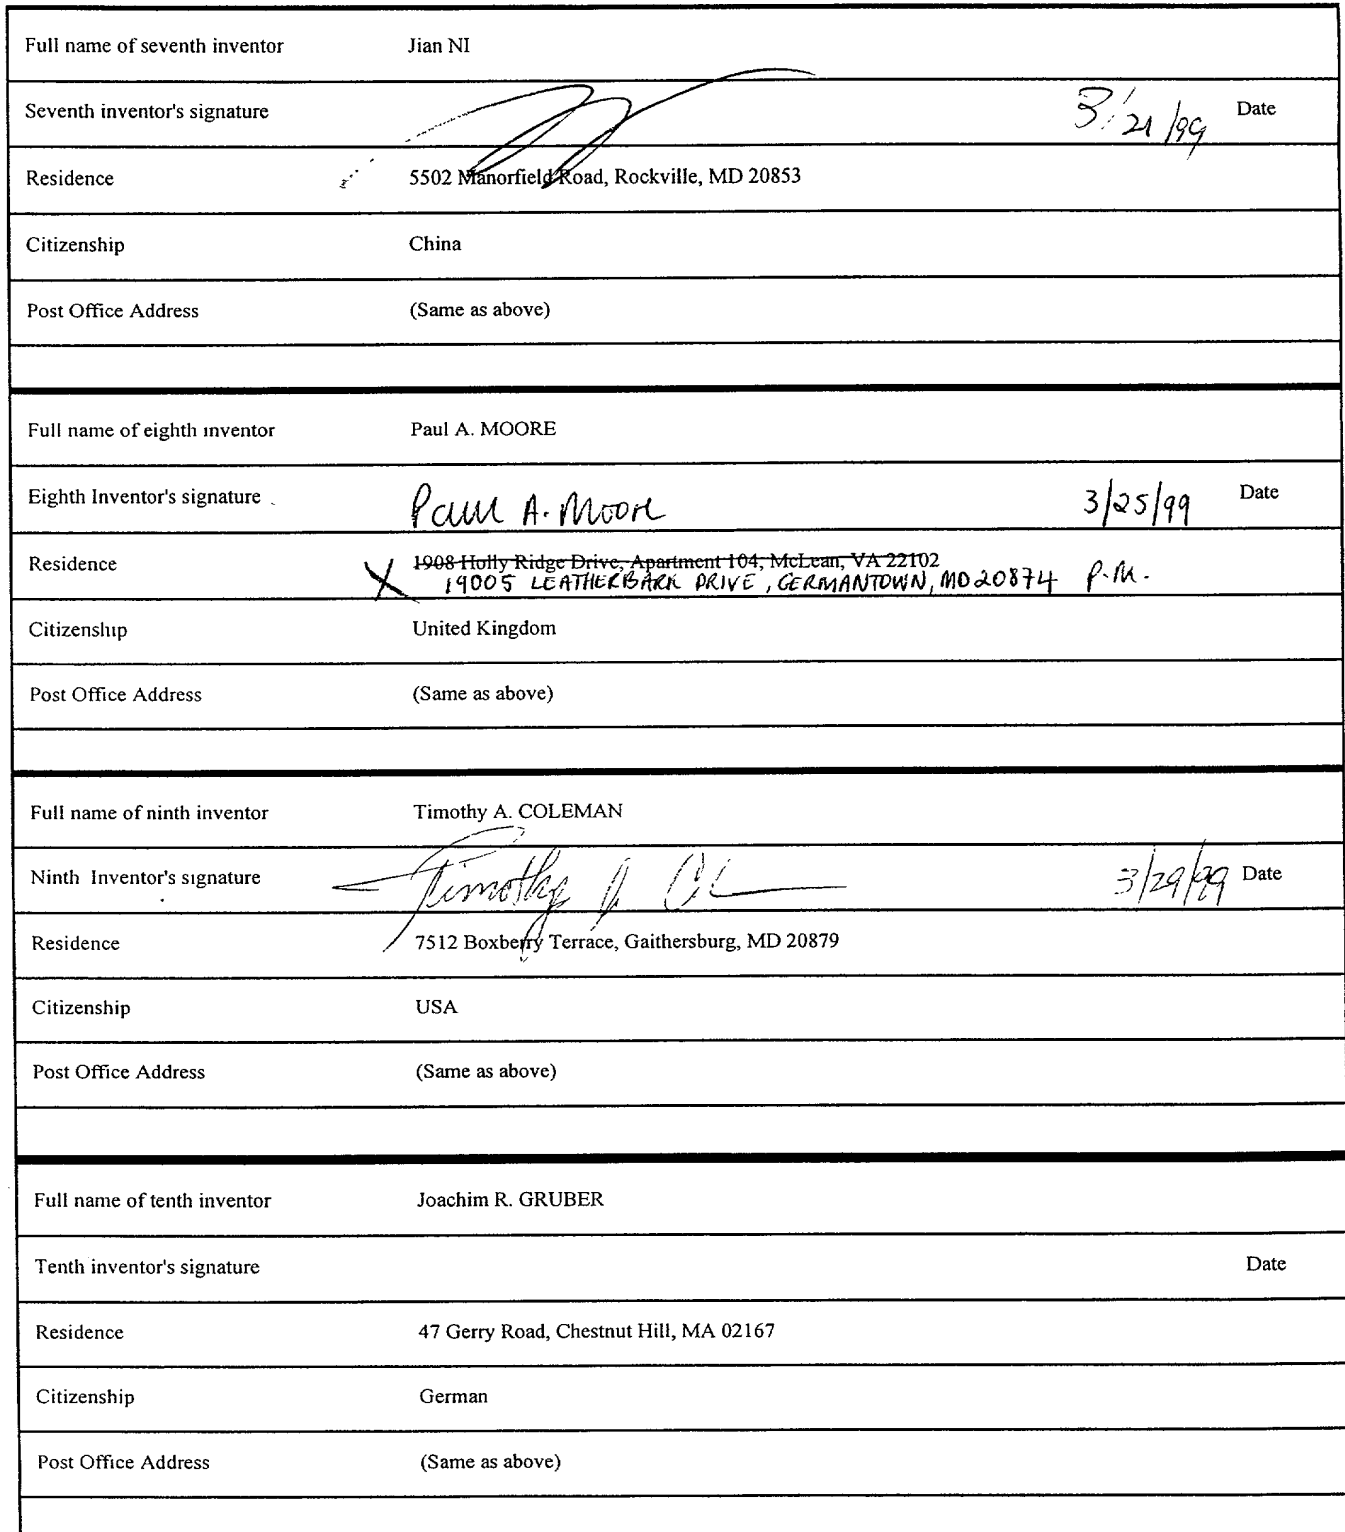 Full name of seventh inventor Jian NI
Seventh inventor's signature 3/21/99 Date
Residence 5502 Manorfield Road, Rockville, MD 20853
Citizenship China
Post Office Address (Same as above)
Full name of eighth inventor Paul A. MOORE
Eighth Inventor's signature Paul A. Moore 3/25/99 Date
Residence 1908 Holly Ridge Drive, Apartment 104, McLean, VA 22102
X 19005 LEATHERBARK DRIVE, GERMANTOWN, MD 20874 P.M.
Citizenship United Kingdom
Post Office Address (Same as above)
Full name of ninth inventor Timothy A. COLEMAN
Ninth Inventor's signature Timothy 3/29/99 Date
Residence 7512 Boxberry Terrace, Gaithersburg, MD 20879
Citizenship USA
Post Office Address (Same as above)
Full name of tenth inventor Joachim R. GRUBER
Tenth inventor's signature Date
Residence 47 Gerry Road, Chestnut Hill, MA 02167
Citizenship German
Post Office Address (Same as above)